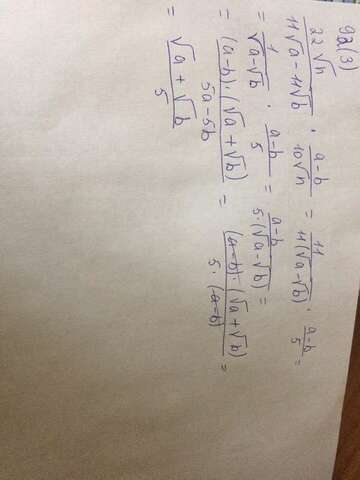 92(3)
22√n / (11√a - 11√b) · (a-b) / (10√n) = 11 / (11(√a-√b)) · (a-b) / 5 =
= 1 / (√a-√b) · (a-b) / 5 = (a-b) / (5·(√a-√b)) =
= (a-b)·(√a+√b) / (5a-5b) = (a-b)·(√a+√b) / (5·(a-b)) =
= (√a+√b) / 5